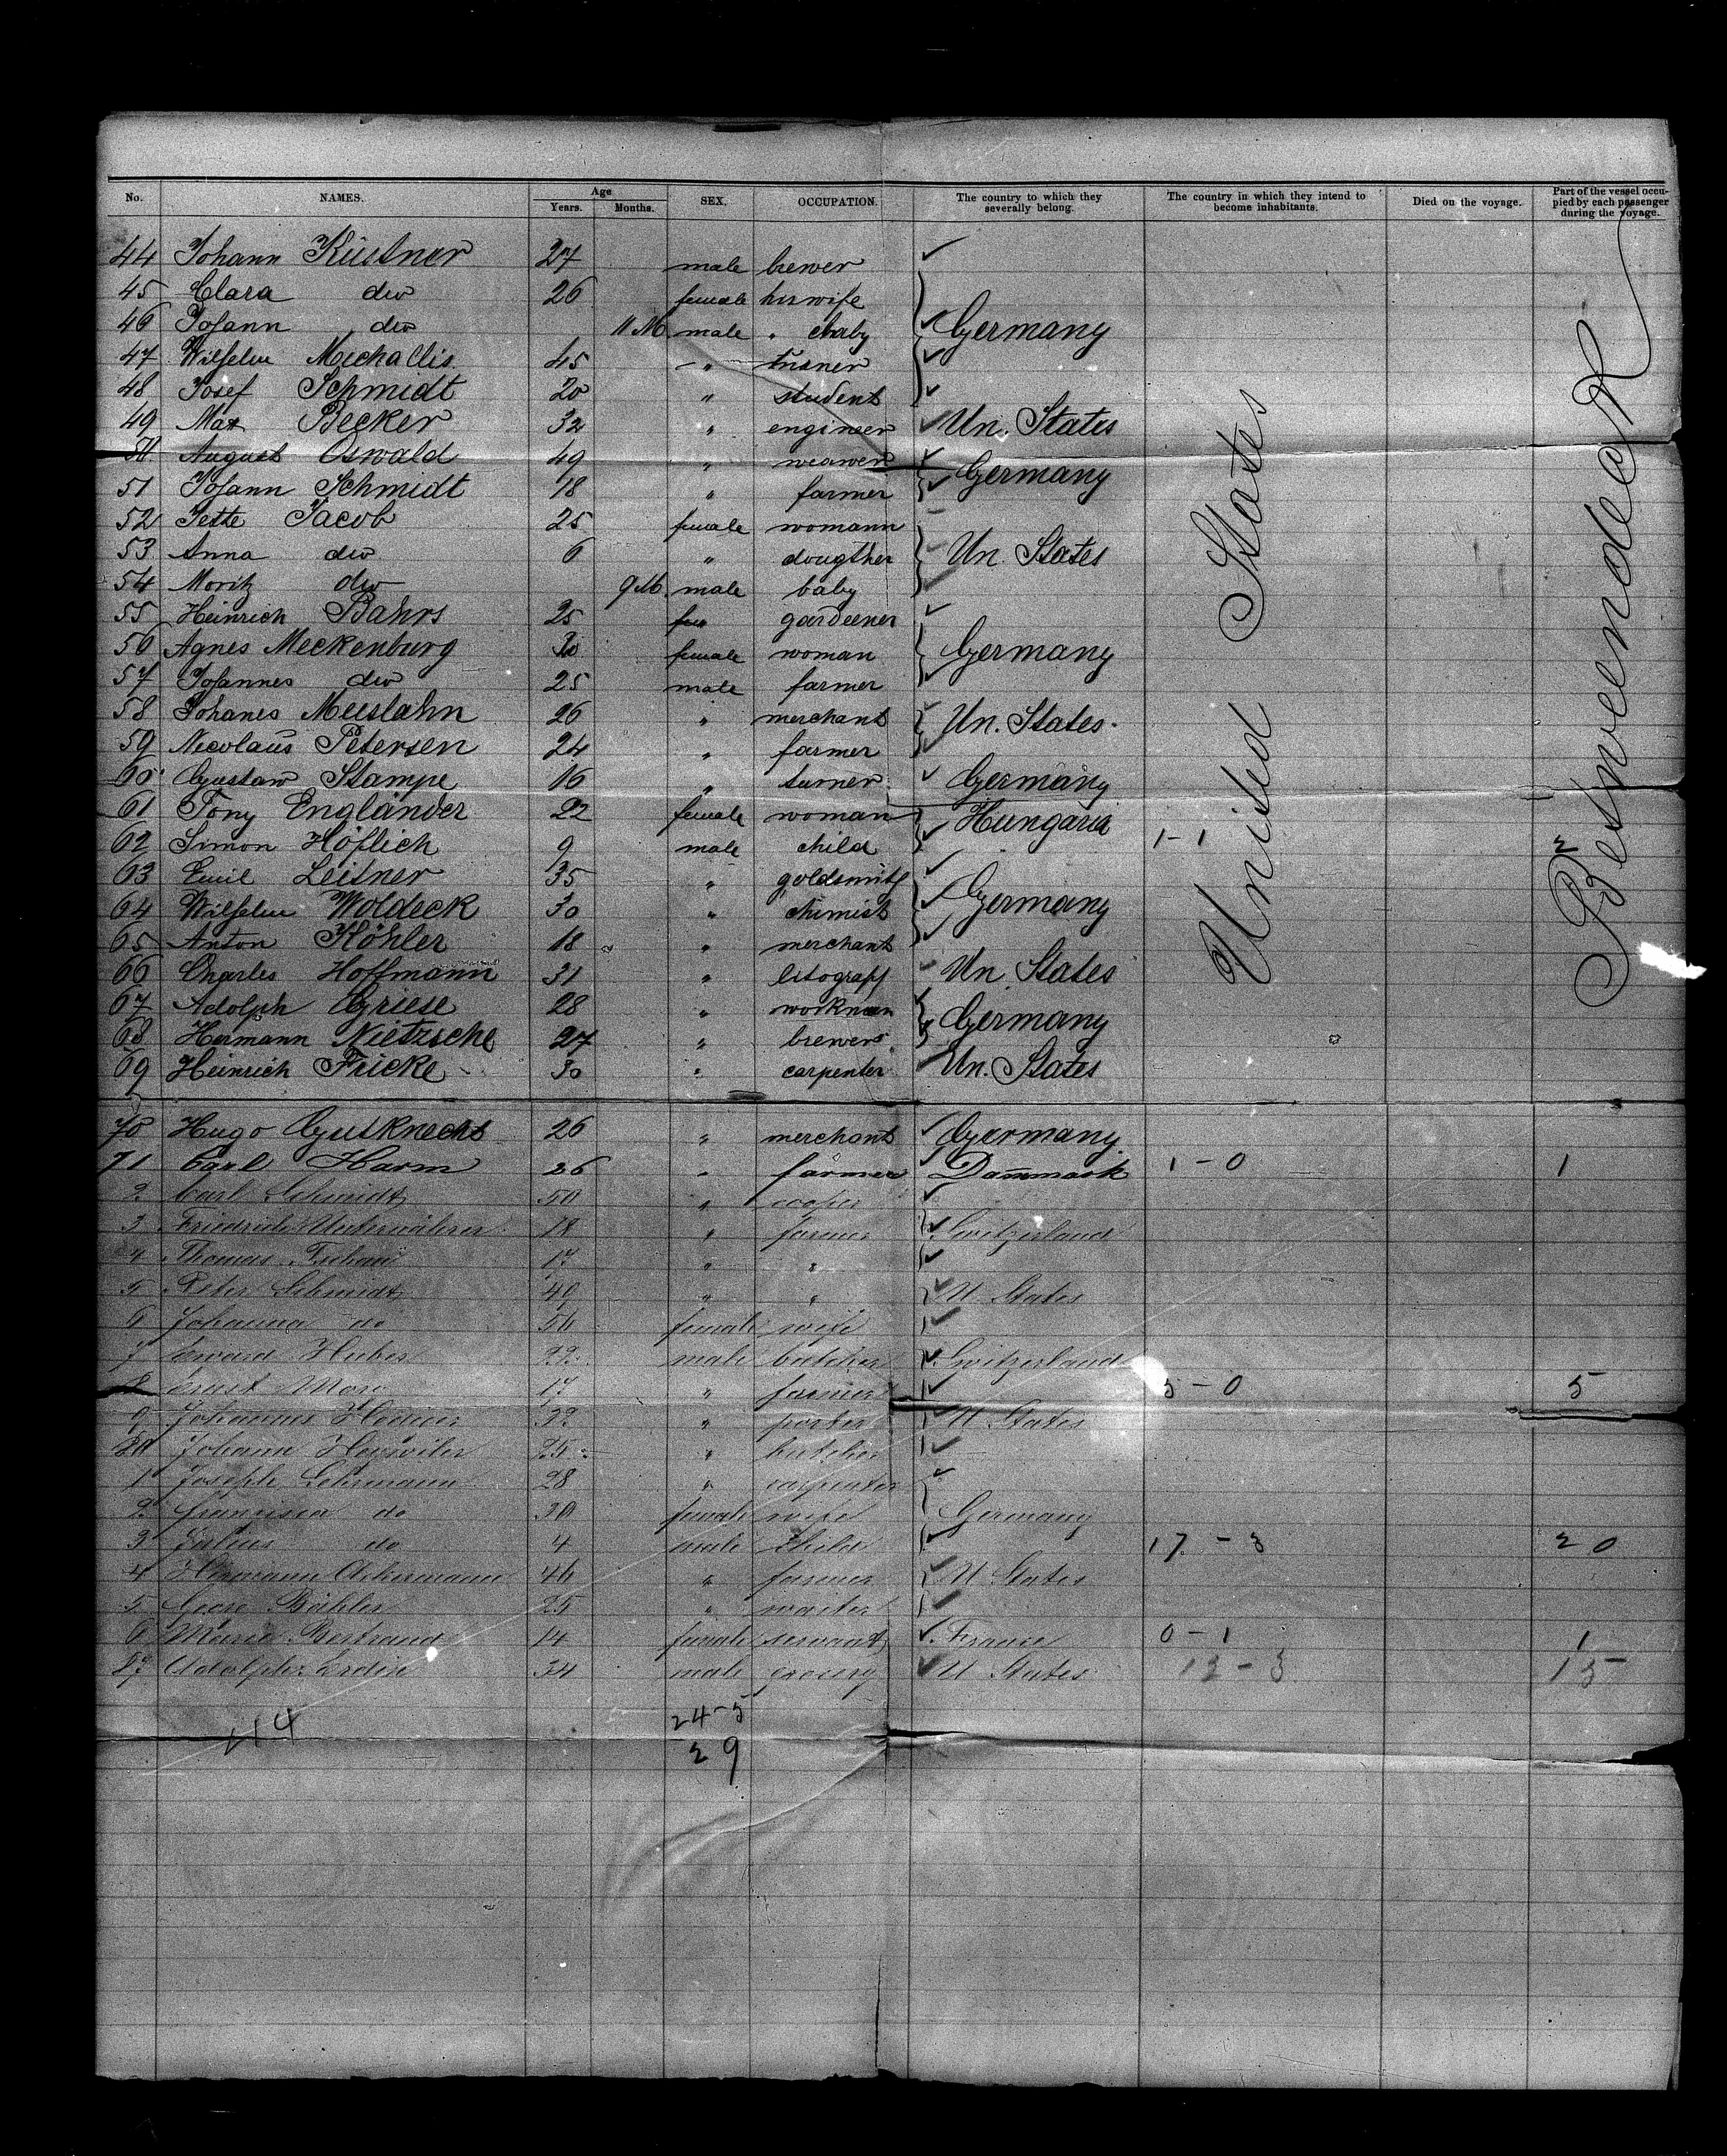 No. NAMES. Age Years. Months. SEX. OCCUPATION. The country to which they severally belong. The country in which they intend to become inhabitants. Died on the voyage. Part of the vessel occupied by each passenger during the voyage.
44 Johann Küstner 27 male brewer
45 Clara dio 26 female his wife
46 Johann dio 11 M male " baby Germany
47 Wilhelm Mechallis 45 "
48 Josef Schmidt 20 " student
49 Max Becker 32 " engineer Un. States
August Oswald 49 " weawer Germany
51 Johann Schmidt 18 " farmer
52 Jette Jacob 25 female womann
53 Anna dio 6 " dougther Un. States
54 Moritz dio 9 M. male baby
55 Heinrich Bahrs 25 gardeener
56 Agnes Meckenburg 30 female woman Germany
57 Johannes dio 25 male farmer
58 Johanes Meeslahn 26 " merchant Un. States.
59 Nicolaus Petersen 24 " farmer
60 Gustaw Stampe 16 " turner Germany
61 Tony Engländer 22 female woman Hungaria
62 Simon Höflich 9 male child 1-1 2
63 Emil Leitner 35 " goldsmith
64 Wilhelm Woldeck 30 " chimist Germany
65 Anton Köhler 18 " merchant
66 Charles Hoffmann 31 " litograpf Un. States
67 Adolph Griese 28 " workman Germany
68 Hermann Nietzsche 27 " brewer
69 Heinrich Fricke 30 " carpenter Un. States
United States
Betweendeck
70 Hugo Gutknecht 26 " merchant Germany
71 Carl Harm 26 " farmer Dannmark 1-0 1
2 Carl Schmidt 50 " cooper
3 Friedrich 18 " farmer Switzerland
4 Thomas 17 " "
5 Peter Schmidt 49 " " U States
6 Johanna do 56 female wife
7 Huber 22 male butcher Switzerland
8 Ernst 17 " farmer 5-0 5
9 Johannes 32 " porter U States
80 Johann 25 " butcher
1 Joseph Lehrmann 28 " carpenter
2 do 30 female wife Germany
3 Julius do 4 male child 17-3 20
4 Hermann Ackermann 46 " farmer U States
5 Bähler 25 " waiter
6 Marie Bertrand 14 female servant France 0-1 1
87 Adolph Erdin 34 male U States 12-3 15
24-5
29